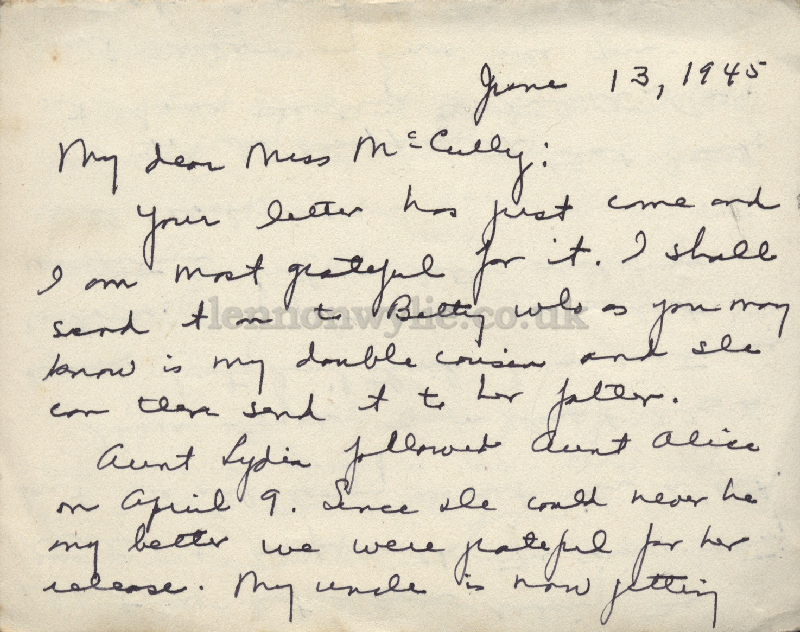 June 13, 1945
My dear Miss McCully:
Your letter has just come and
I am most grateful for it. I shall
send it on to Betty who as you may
know is my double cousin and she
can then send it to her father.
Aunt Lydia followed Aunt Alice
on April 9. Since she could never be
any better we were grateful for her
release. My uncle is now getting
lennonwylie.co.uk